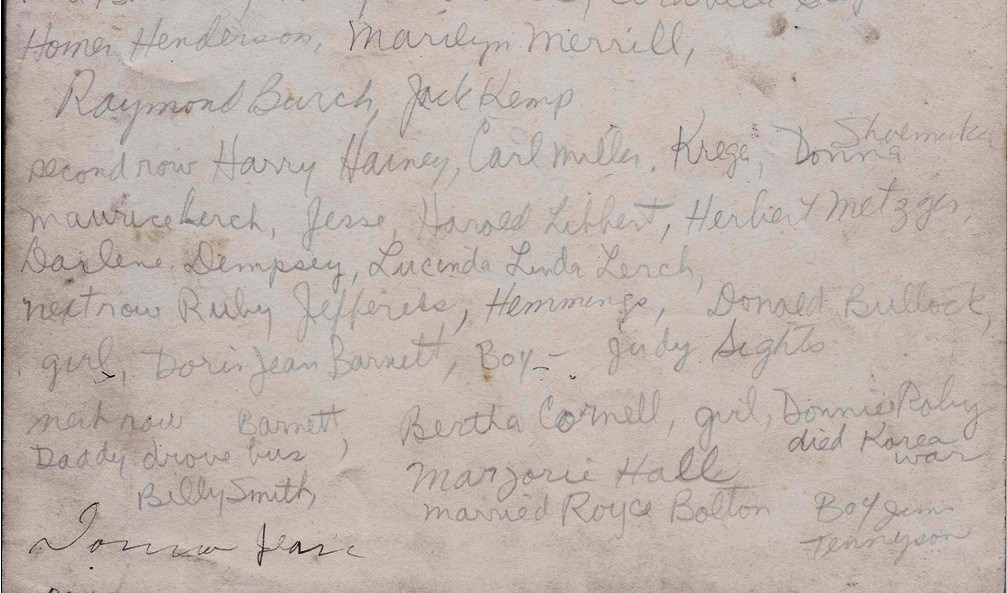 Homer Henderson, Marilyn Merrill,
Raymond Burch, Jack Kemp
Shoemaker
second row Harry Hainey, Carl Miller, Krege, Donna
Maurice Lerch, Jesse, Harold Libbert, Herbert Metzger,
Darlene Dempsey, Lucinda Linda Lerch,
next row Ruby Jefferies, Hemmings, Donald Bullock,
girl, Doris Jean Barnett, Boy - Judy Sights
next row Barnett, Bertha Cornell, girl, Donnie Roby
died Korea
war
Daddy drove bus
Marjorie Hall
Billy Smith
married Royce Bolton Boy Jim
Tennyson
Donna Jean